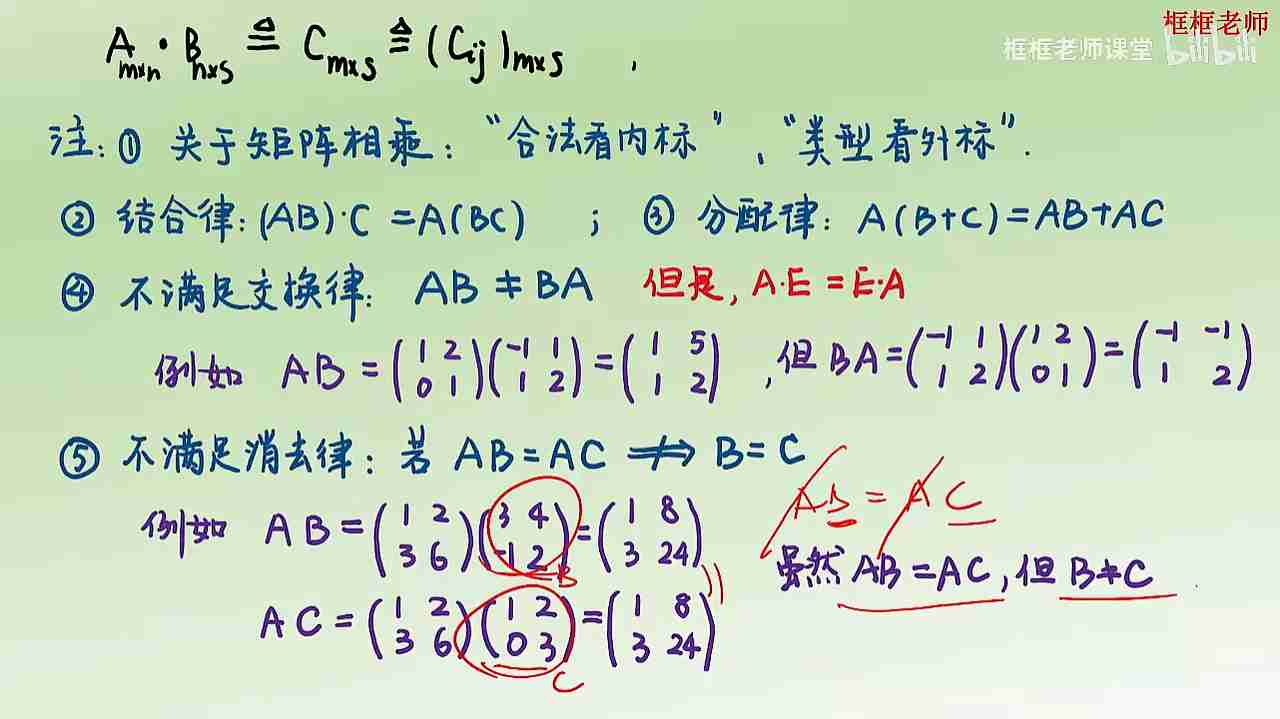 框框老师
框框老师课堂 bilibili
A_{m×n}·B_{n×s} ≙ C_{m×s} ≙ (C_{ij})_{m×s} ,
注: ① 关于矩阵相乘: “合法看内标”、“类型看外标”.
② 结合律: (AB)·C = A(BC) ; ③ 分配律: A(B+C)=AB+AC
④ 不满足交换律: AB ≠ BA 但是, A·E = E·A
例如 AB = (1 2; 0 1)(-1 1; 1 2) = (1 5; 1 2) , 但 BA = (-1 1; 1 2)(1 2; 0 1) = (-1 -1; 1 2)
⑤ 不满足消去律: 若 AB=AC ⇏ B=C
AB = AC
例如 AB = (1 2; 3 6)(3 4; -1 2) = (1 8; 3 24)
B
虽然 AB=AC, 但 B≠C
AC = (1 2; 3 6)(1 2; 0 3) = (1 8; 3 24)
C